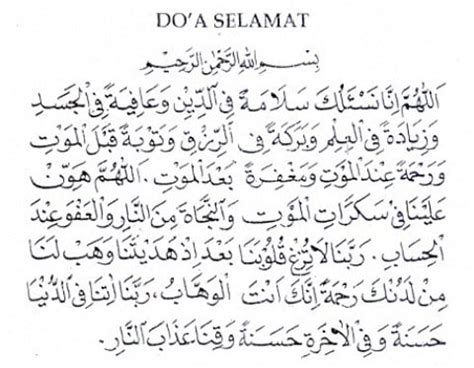 DO'A SELAMAT
بِسْمِ اللهِ الرَّحْمٰنِ الرَّحِيْمِ
اَللّٰهُمَّ اِنَّا نَسْئَلُكَ سَلَامَةً فِى الدِّيْنِ وَعَافِيَةً فِى الْجَسَدِ
وَزِيَادَةً فِى الْعِلْمِ وَبَرَكَةً فِى الرِّزْقِ وَتَوْبَةً قَبْلَ الْمَوْتِ
وَرَحْمَةً عِنْدَ الْمَوْتِ وَمَغْفِرَةً بَعْدَ الْمَوْتِ. اَللّٰهُمَّ هَوِّنْ
عَلَيْنَا فِى سَكَرَاتِ الْمَوْتِ وَالنَّجَاةَ مِنَ النَّارِ وَالْعَفْوَ عِنْدَ
الْحِسَابِ. رَبَّنَا لَا تُزِغْ قُلُوْبَنَا بَعْدَ اِذْ هَدَيْتَنَا وَهَبْ لَنَا
مِنْ لَدُنْكَ رَحْمَةً اِنَّكَ اَنْتَ الْوَهَّابُ، رَبَّنَا اٰتِنَا فِى الدُّنْيَا
حَسَنَةً وَفِى الْاٰخِرَةِ حَسَنَةً وَقِنَا عَذَابَ النَّارِ.